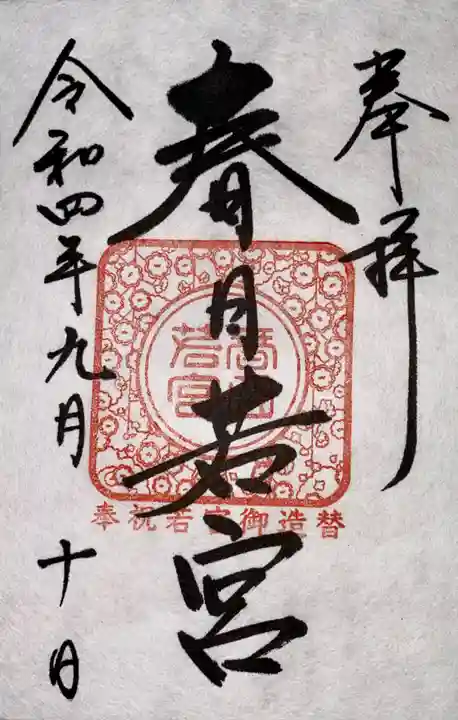 奉拝
春日若宮
春日
若宮
奉祝若宮御造替
令和四年九月十日